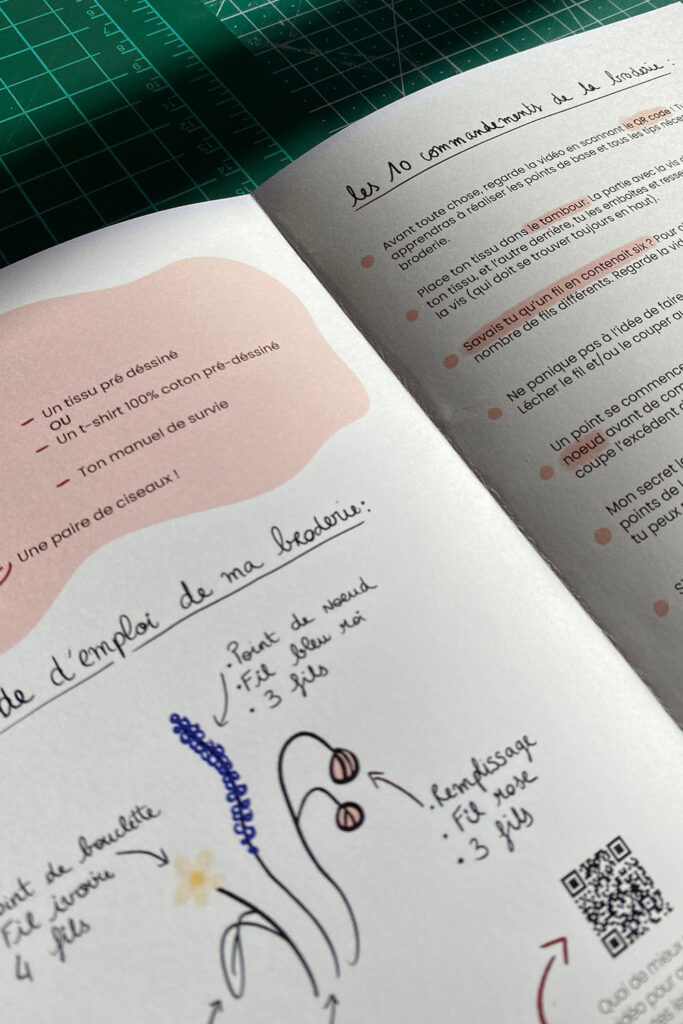 - Un tissu pré déssiné
OU
- Un t-shirt 100% coton pré-déssiné
- Ton manuel de survie
Une paire de ciseaux !
de d'emploi de ma broderie:
. Point de noeud
. Fil bleu roi
. 3 fils
. Remplissage
. Fil rose
. 3 fils
de bouclette
Fil ivoire
4 fils
Quoi de mieux
pour
les 10 commandements de la broderie :
Avant toute chose, regarde la vidéo en scannant le QR code !
apprendras à réaliser les points de base et tous les tips
broderie.
Place ton tissu dans le tambour. La partie avec la vis
ton tissu, et l'autre derrière, tu les emboîtes et
la vis (qui doit se trouver toujours en haut).
Savais tu qu'un fil en contenait six ?
nombre de fils différents. Regarde la
Ne panique pas à l'idée de faire
Lécher le fil et/ou le couper
Un point se commence
noeud avant de
coupe l'excédent
Mon secret
points de
tu peux